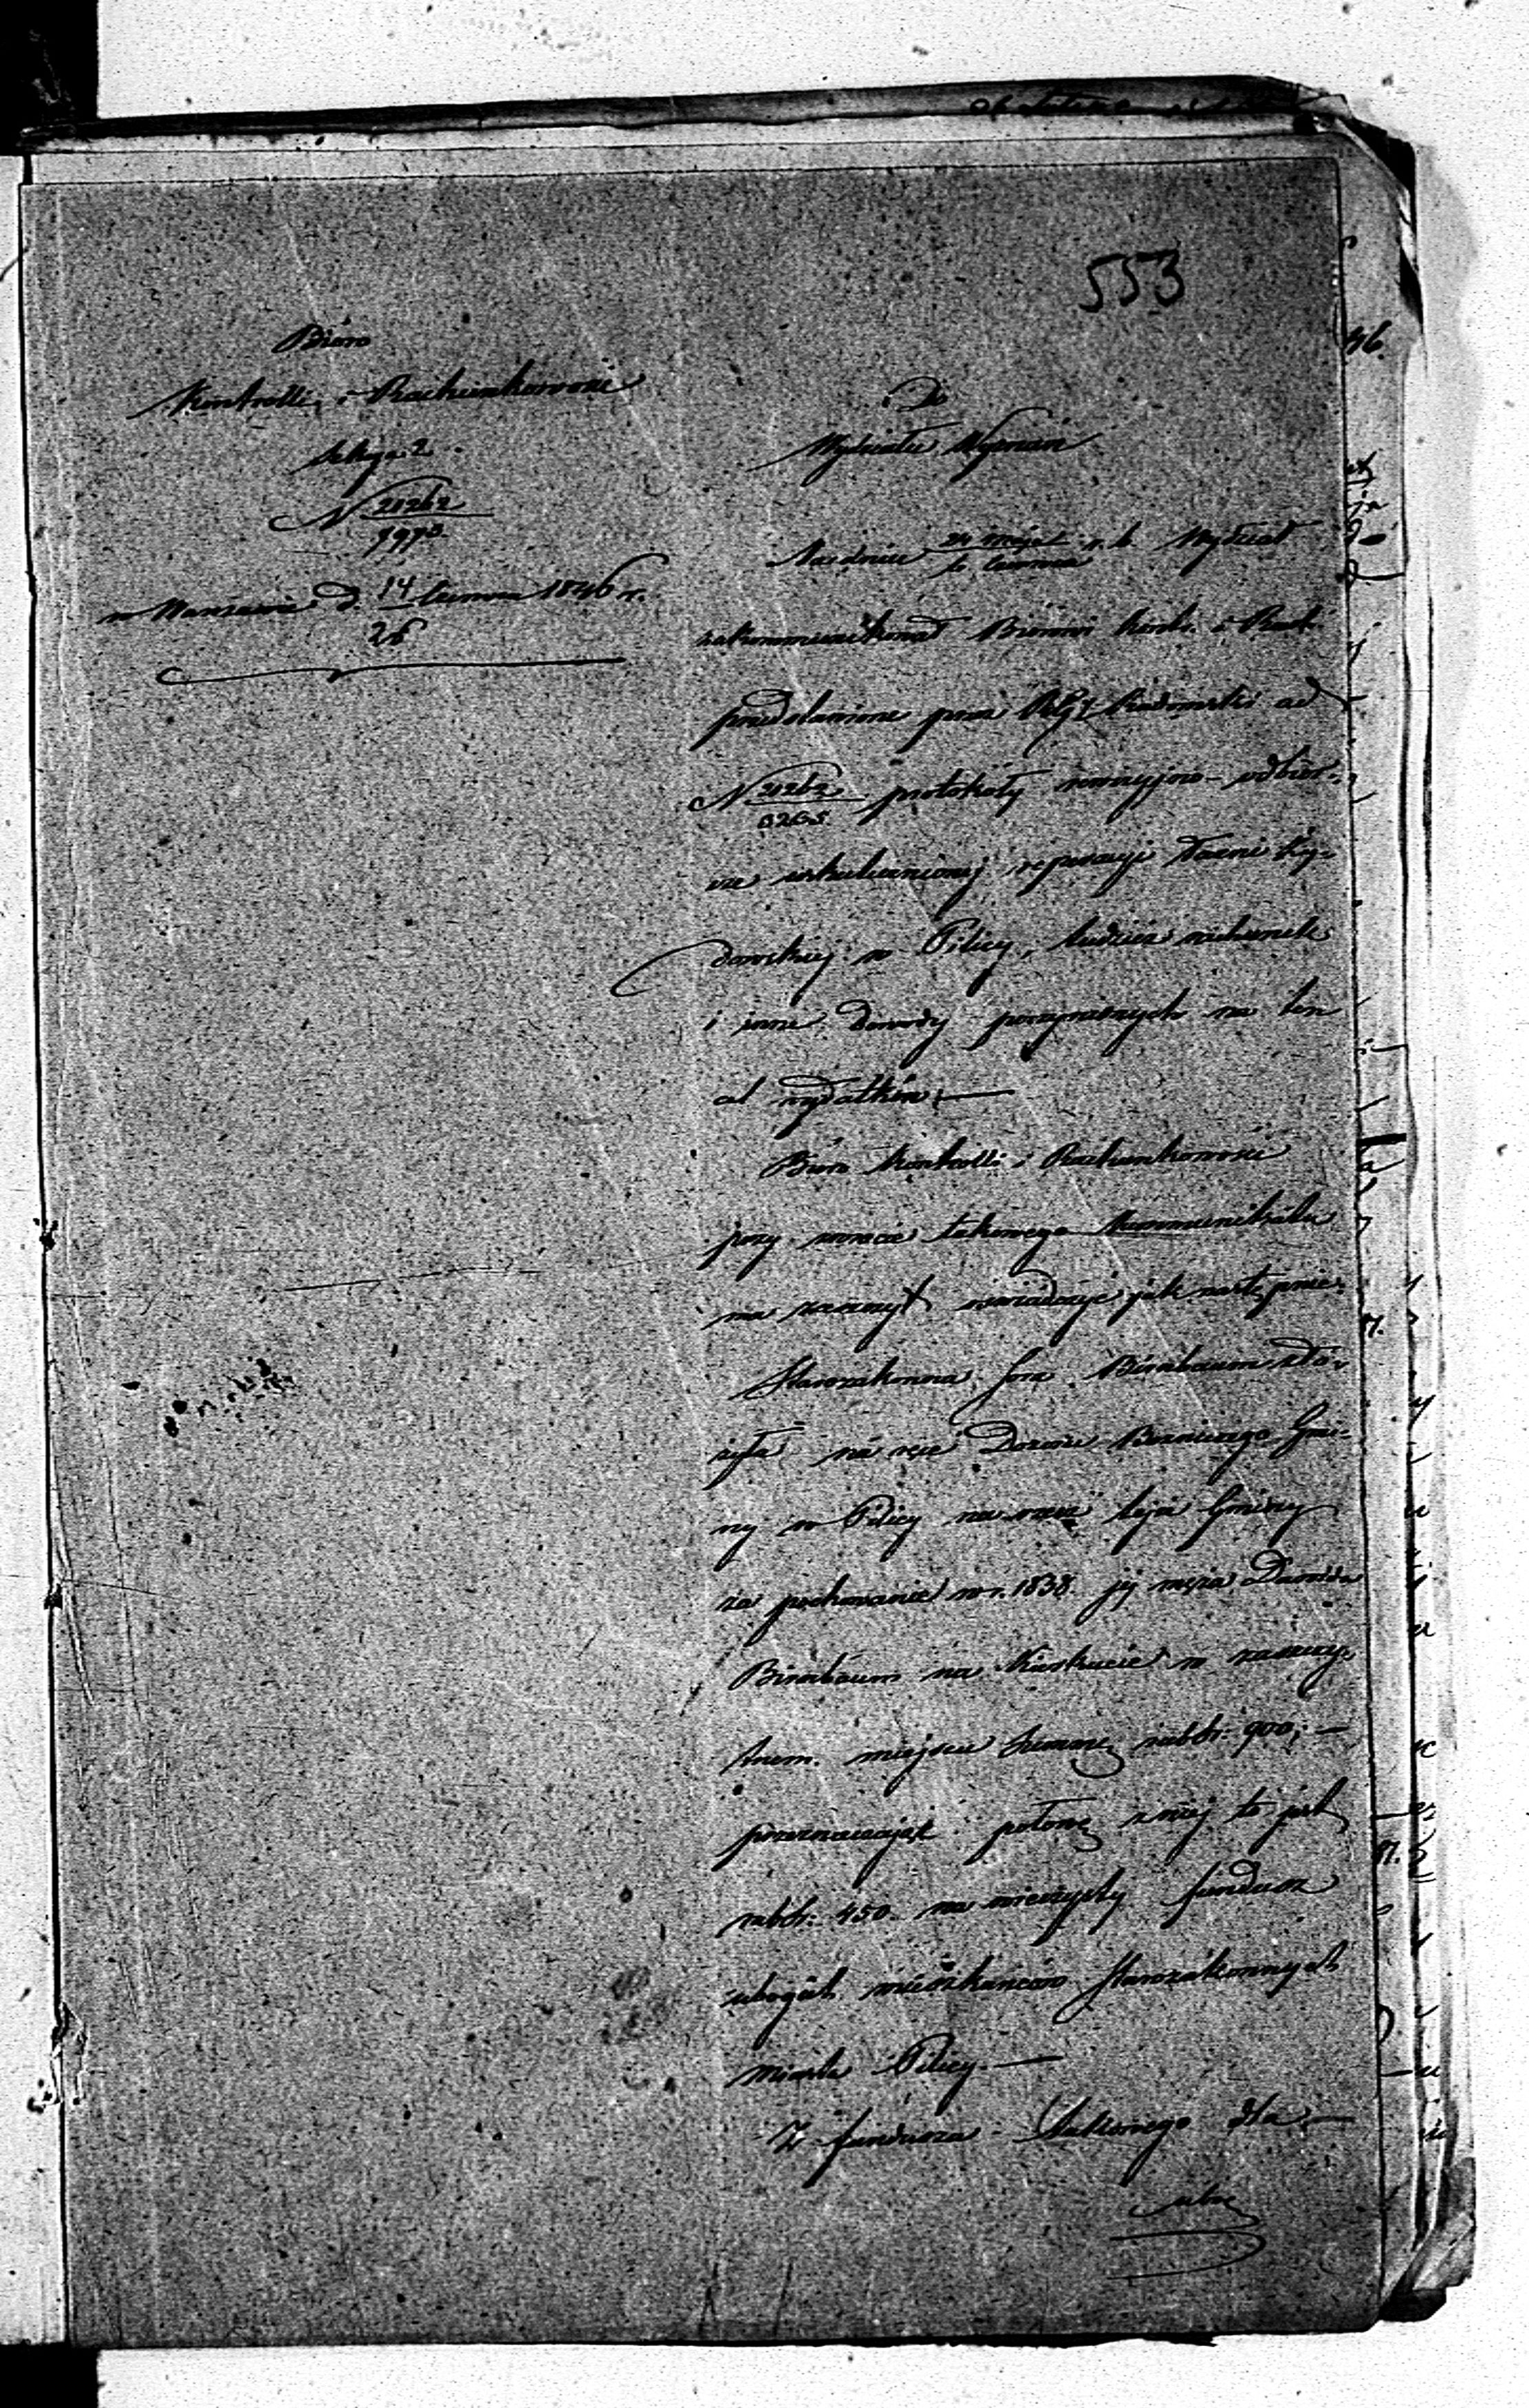 553
Biuro
Kontrolli i Rachunkowości
Sekcya 2.
N 21262
w Warszawie d. 14/26 Czerwca 1846 r.
Do
Wydziału Wyznań
Na dniu r. b. Wydział
zakommunikował Biurowi Kontr. i Rach.
przedstawione przez Radomski ad
N 21262 protokóły rewizyjno-odbior-
cze uskutecznionej reparacyi Łaźni Ży-
dowskiej w Pilicy, tudzież rachunek
i inne dowody poczynionych na ten
cel wydatków.—
Biuro Kontrolli i Rachunkowości
przy zwrocie takowego Kommunikatu
ma zaszczyt oświadczyć jak następuie:
Starozakonna Sora Birnbaum zło-
żyła na ręce Dozoru Bożniczego Gmi-
ny w Pilicy na rzecz tejże Gminy
za pochowanie w r. 1838 jej męża Dawida
Birnbaum na Kierkucie w zaszczy-
tnem miejscu Summę rubsr: 900,—
przeznaczając połowę z niej to jest
rubsr: 450. na wieczysty fundusz
ubogich mieszkańców Starozakonnych
Miasta Pilicy.—
Z funduszu takowego dla—
ubo